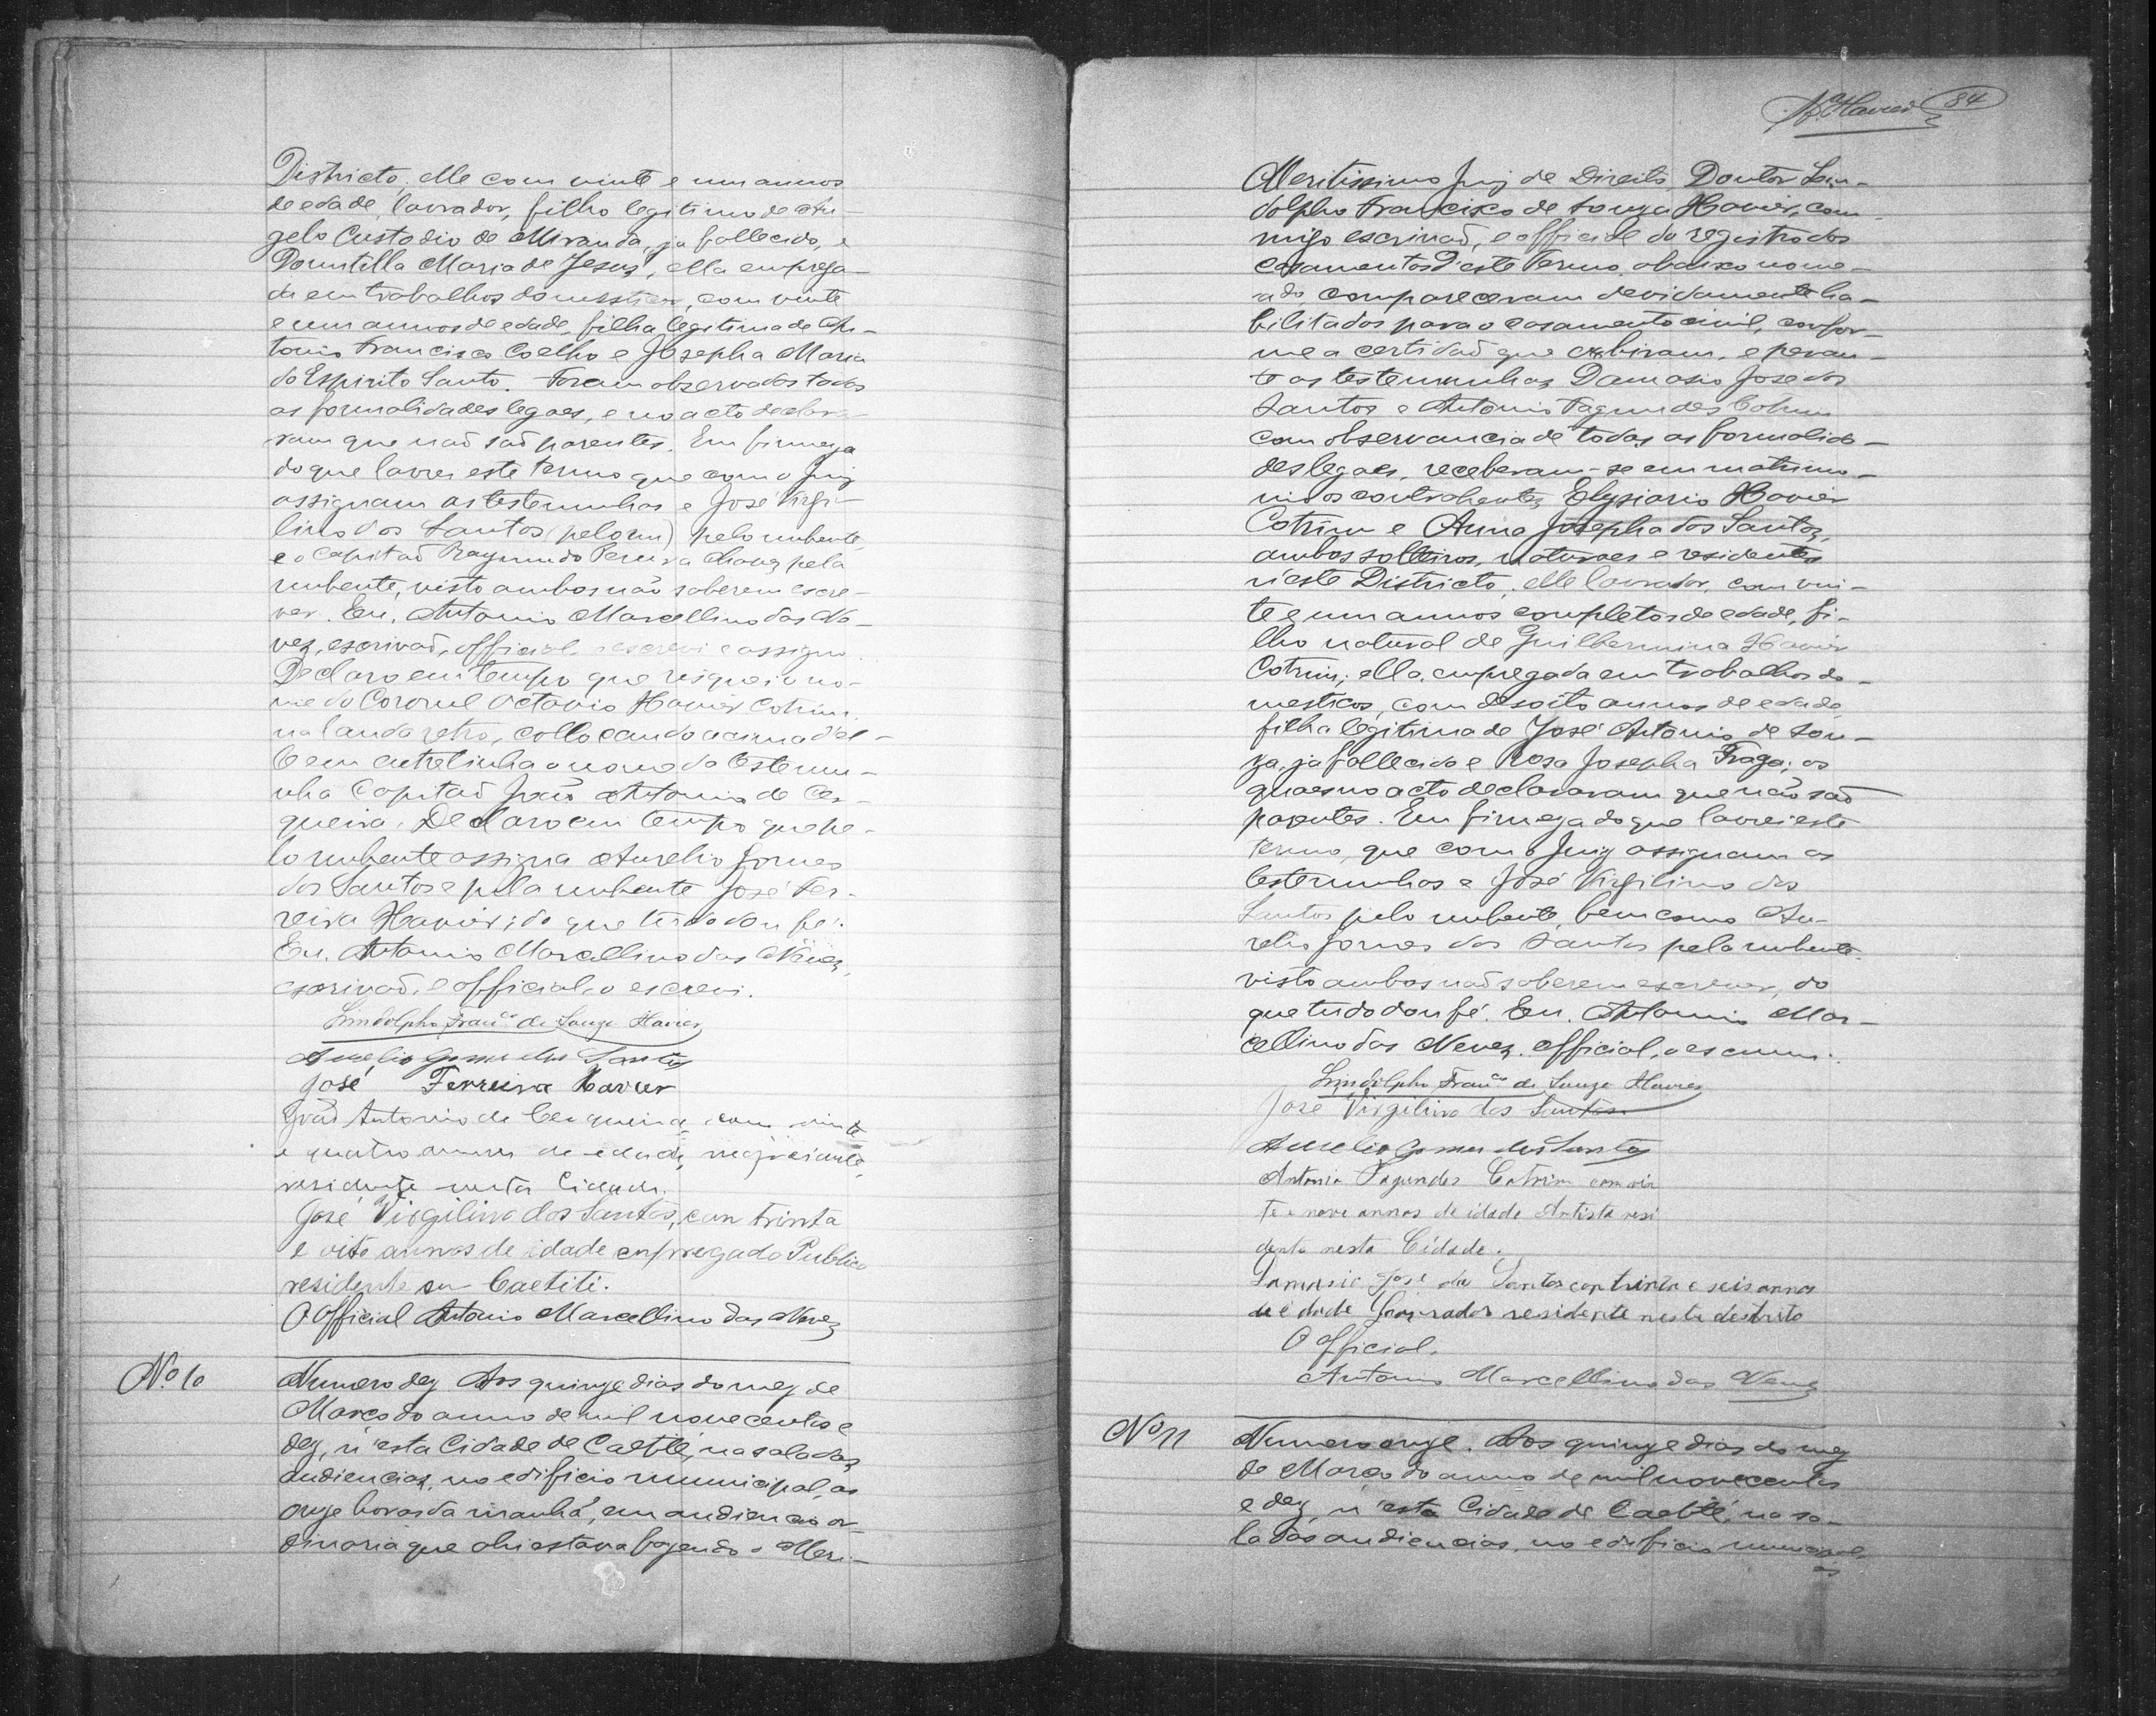 Districto, elle com vinte e um annos
de edade, lavrador, filho legitimo de An-
gelo Custodio de Miranda, ja fallecido, e
Domitilla Maria de Jesus, ella emprega-
da em trabalhos domesticos, com vinte
e um annos de edade, filha legitima de An-
tonio Francisco Coelho e Josepha Maria
do Espirito Santo. Foram observadas todas
as formalidades legaes, e no acto declara-
ram que naõ saõ parentes. Em firmeza
do que lavrei este termo que com o Juiz
assignam as testemunhas e José Virgi-
lino dos Santos (pelo nu) pelo nubente,
e o Capitaõ Raymundo Pereira pela
nubente, visto ambos não saberem escre-
ver. Eu, Antonio Marcellino das Ne-
vez, escrivaõ, official, escrevi e assigno.
Declaro em tempo que risquei o no-
me do Coronel Octavio Xavier Cotrim
na lauda retro, collocando acima d'el-
le em entrelinha o nome da testemu-
nha Capitaõ João Antonio de Cer-
queira. Declaro em tempo que pe-
lo nubente assigna Aurelio Gomes
dos Santos e pela nubente José Fer-
reira Xavier; do que tudo dou fé.
Eu, Antonio Marcellino das Nevez,
escrivaõ, e official, o escrevi.
Lindolpho Franco de Souza Xavier
Aurelio Gomes dos Santos
José Ferreira Xavier
João Antonio de Cerqueira, com vinte
e quatro annos de edade, negociante,
residente nesta Cidade.
José Virgilino dos Santos, con trinta
e oito annos de idade enpregado Publico
residente en Caetité.
O Official Antonio Marcellino das Nevez
No. 10
Numero dez Aos quinze dias do mez de
Março do anno de mil novecentos e
dez, n'esta Cidade de Caetité, na sala das
audiencias, no edificio municipal, as
onze horas da manhã, em audiencia or-
dinaria que ahi estava fazendo o Meri-
84
Meritissimo Juiz de Direito, Doutor Lin-
dolpho Francisco de Souza Xavier, com-
migo escrivaõ, e official do registro dos
casamentos d'este termo, abaixo nome-
ado, compareceram devidamente ha-
bilitados para o casamento civil, confor-
me a certidaõ que exhibiram, e peran-
te as testemunhas Damasio José dos
Santos e Antonio Fagundes Cotrim
com observancia de todas as formalida-
des legaes, receberam-se em matrimo-
nio os contrahentes Elysiario Xavier
Cotrim e Anna Josepha dos Santos,
ambos solteiros, naturaes e residentes
n'este Districto, elle lavrador, com vin-
te e um annos completos de edade, fi-
lho natural de Guilhermina Xavier
Cotrim; ella, empregada em trabalhos do-
mesticos, com desoito annos de edade,
filha legitima de José Antonio de Sou-
za, ja fallecido e Rosa Josepha Fraga; os
quaes no acto declararam que não saõ
parentes. Em firmeza do que lavrei este
termo, que com o Juiz assignam as
testemunhas e José Virgilino dos
Santos pelo nubente, bem como Au-
relio Gomes dos Santos pela nubente,
visto ambos naõ saberem escrever, do
que tudo dou fé. Eu, Antonio Mar-
cellino das Nevez, official, o escrevi.
Lindolpho Franco de Souza Xavier
José Virgilino dos Santos
Aurelio Gomes dos Santos
Antonio Fagundes Cotrim com vin
te e nove annos de idade Artista resi
dente nesta Cidade.
Damasio José dos Santos con trinta e seis annos
de edade Lavrador residente neste destrito
O Official,
Antonio Marcellino das Nevez
No 11
Numero onze. Aos quinze dias do mez
de Março do anno de mil novecentos
e dez, n'esta Cidade de Caetité, na sa-
la das audiencias, no edificio municipal,
as